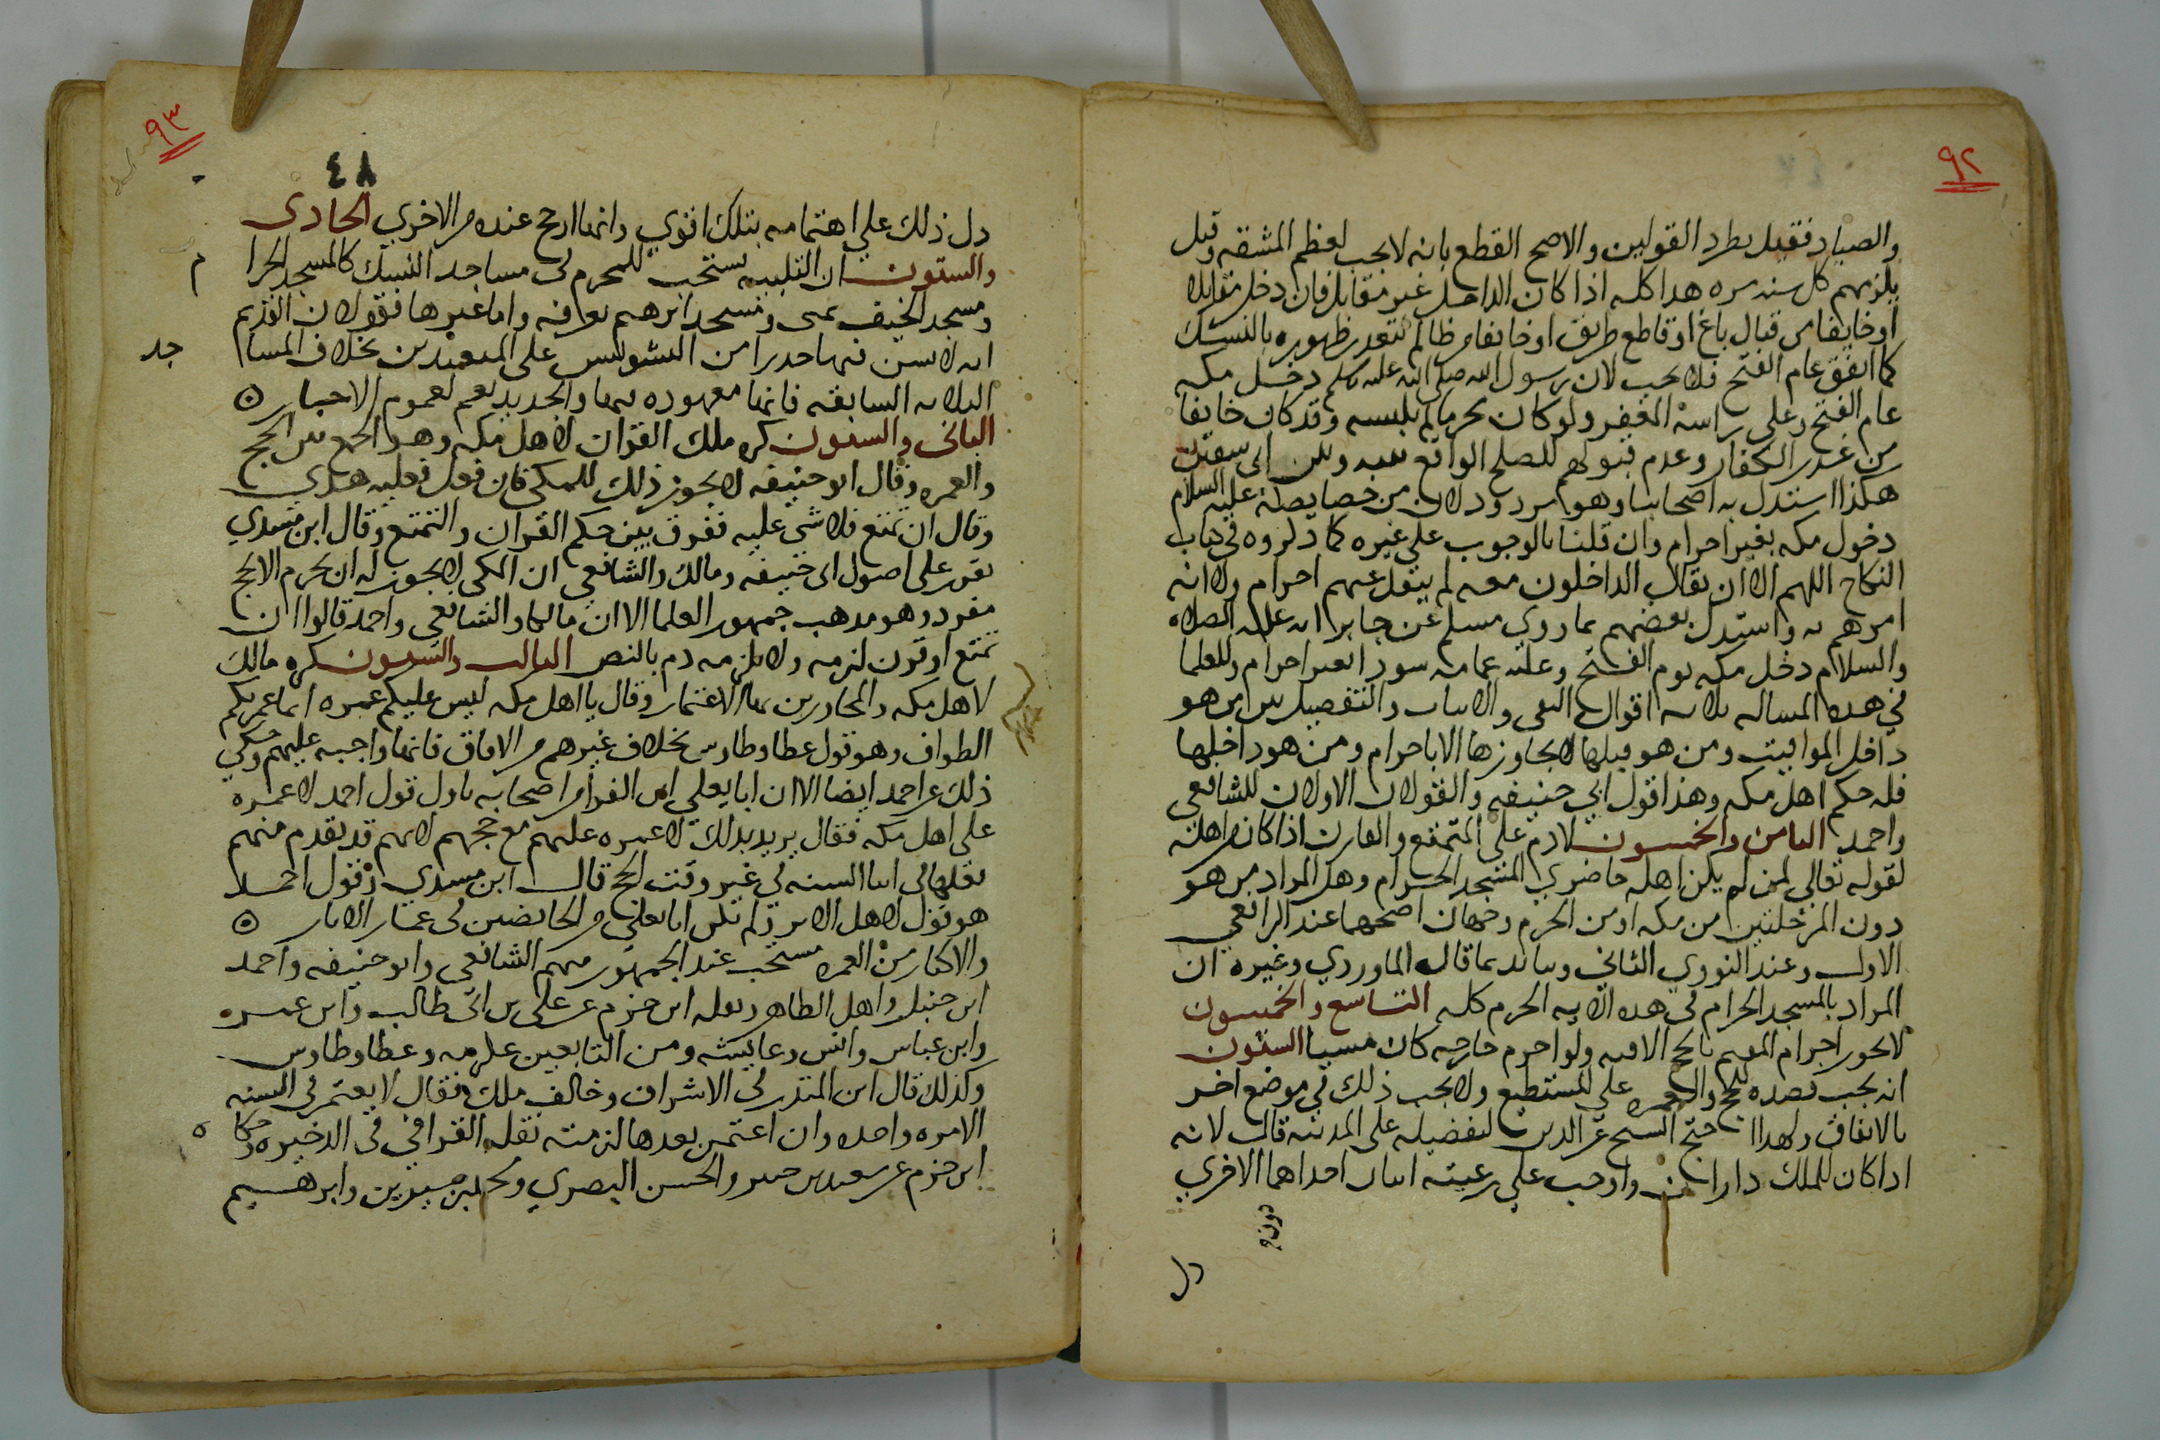 ٩٢
والصياد فقيل بطرد القولين والاصح القطع بانه لا يجب لعظم المشقه وقيل
يلزمهم كل سنه مره هذا كله اذا كان الداخل غير مقاتل فان دخل مقاتلا
او خايفا من قتال باغ او قاطع طريق او خايفا من ظالم لتعذر ظهوره بالنسك
كما اتفق عام الفتح فلا يجب لان رسول الله صلى الله عليه وسلم دخل مكه
عام الفتح وعلى راسه المغفر ولو كان محرما لم يلبسه وقد كان خايفا
من غدر الكفار وعدم قبولهم للصلح الواقع بينه وبين ابى سفين
هكذا استدل به اصحابنا وهو مردود لان من خصايصه عليه السلام
دخول مكه بغير احرام وان قلنا بالوجوب على غيره كما ذكروه في كتاب
النكاح اللهم الا ان يقال الداخلون معه لم ينقل عنهم احرام ولا انه
امرهم به واستدل بعضهم بما روي مسلم عن جابر انه عليه الصلاه
والسلام دخل مكه يوم الفتح وعليه عمامه سودا بغير احرام وللعلما
في هذه المساله ثلاثه اقوال النفي والاثبات والتفصيل بين من هو
داخل المواقيت ومن هو قبلها لا يجاوزها الا باحرام ومن هو داخلها
فله حكم اهل مكه وهذا قول ابي حنيفه والقولان الاولان للشافعي
واحمد الثامن والخمسون لا دم على المتمتع والقارن اذا كان من اهله
لقوله تعالى لمن لم يكن اهله حاضري المسجد الحرام وهل المراد من هو
دون المرحلتين من مكه او من الحرم وجهان اصحهما عند الرافعي
الاول وعند النووي الثاني ويتايد بما قال الماوردي وغيره ان
المراد بالمسجد الحرام في هذه الايه الحرم كله التاسع والخمسون
لا يجوز احرام المقيم بالحج الا فيه ولو احرم خارجه كان مسيا الستون
انه يجب قصده للحج والعمره على المستطيع ولا يجب ذلك في موضع اخر
بالاتفاق ولهذا احتج الشيخ عز الدين لتفضيله على المدينه قال لانه
اذا كان للملك داران واوجب على رعيته اتيان احداهما الاخري
دون
دل
٩٣
٤٨
دل ذلك على اهتمامه بتلك اقوي وانها ارجح عنده من الاخري الحادى
والستون ان التلبيه تستحب للمحرم في مساجد النسك كالمسجد الحرا م
ومسجد الخيف بمنى ومسجد ابرهيم بعرفه واما غيرها فقولان القديم
انه لا يسن فيها حذرا من التشويش على المتعبدين بخلاف المسا جد
الثلاثه السابقه فانها معهوده بها والجديد نعم لعموم الاخبار ۞
الثانى والستون كره ملك القران لاهل مكه وهو الجمع بين الحج
والعمره وقال ابو حنيفه لا يجوز ذلك للمكي فان فعل فعليه هدي
وقال ان تمتع فلا شي عليه ففرق بين حكم القران والتمتع وقال ابن مسدي
تقرر على اصول ابى حنيفه ومالك والشافعي ان المكي لا يجوز له ان يحرم الا بحج
مفرد وهو مذهب جمهور العلما الا ان مالكا والشافعي واحمد قالوا ان
تمتع او قرن لزمه ولا يلزمه دم بالنص الثالث والستون كره مالك
لاهل مكه والمجاورين بها الاعتمار وقال يا اهل مكه ليس عليكم عمره انما عمرتكم
الطواف وهو قول عطا وطاوس بخلاف غيرهم من الافاق فانها واجبه عليهم وحكي
ذلك عن احمد ايضا الا ان ابا يعلى ابن الفرا من اصحابه تاول قول احمد لا عمره
على اهل مكه فقال يريد بذلك لا عمره عليهم مع حجهم لانهم قد يقدم منهم
فعلها في اثنا السنه في غير وقت الحج قال ابن مسدي وقول احمد
هو قول لاهل الاثر ولم يكن ابا يعلى من الخايضين في غمار الاثار ۞
والاكثار من العمره مستحب عند الجمهور منهم الشافعي وابو حنيفه واحمد
ابن حنبل واهل الظاهر ونقله ابن حزم عن على بن ابى طالب وابن عمر
وابن عباس وانس وعايشه ومن التابعين عكرمه وعطا وطاوس
وكذلك قال ابن المنذر في الاشراف وخالف ملك فقال لا يعتمر في السنه
الا مره واحده وان اعتمر بعدها لزمته نقله القرافي فى الذخيره وحكا ه
ابن حزم عن سعيد بن جبير والحسن البصري ومحمد بن سيرين وابرهيم